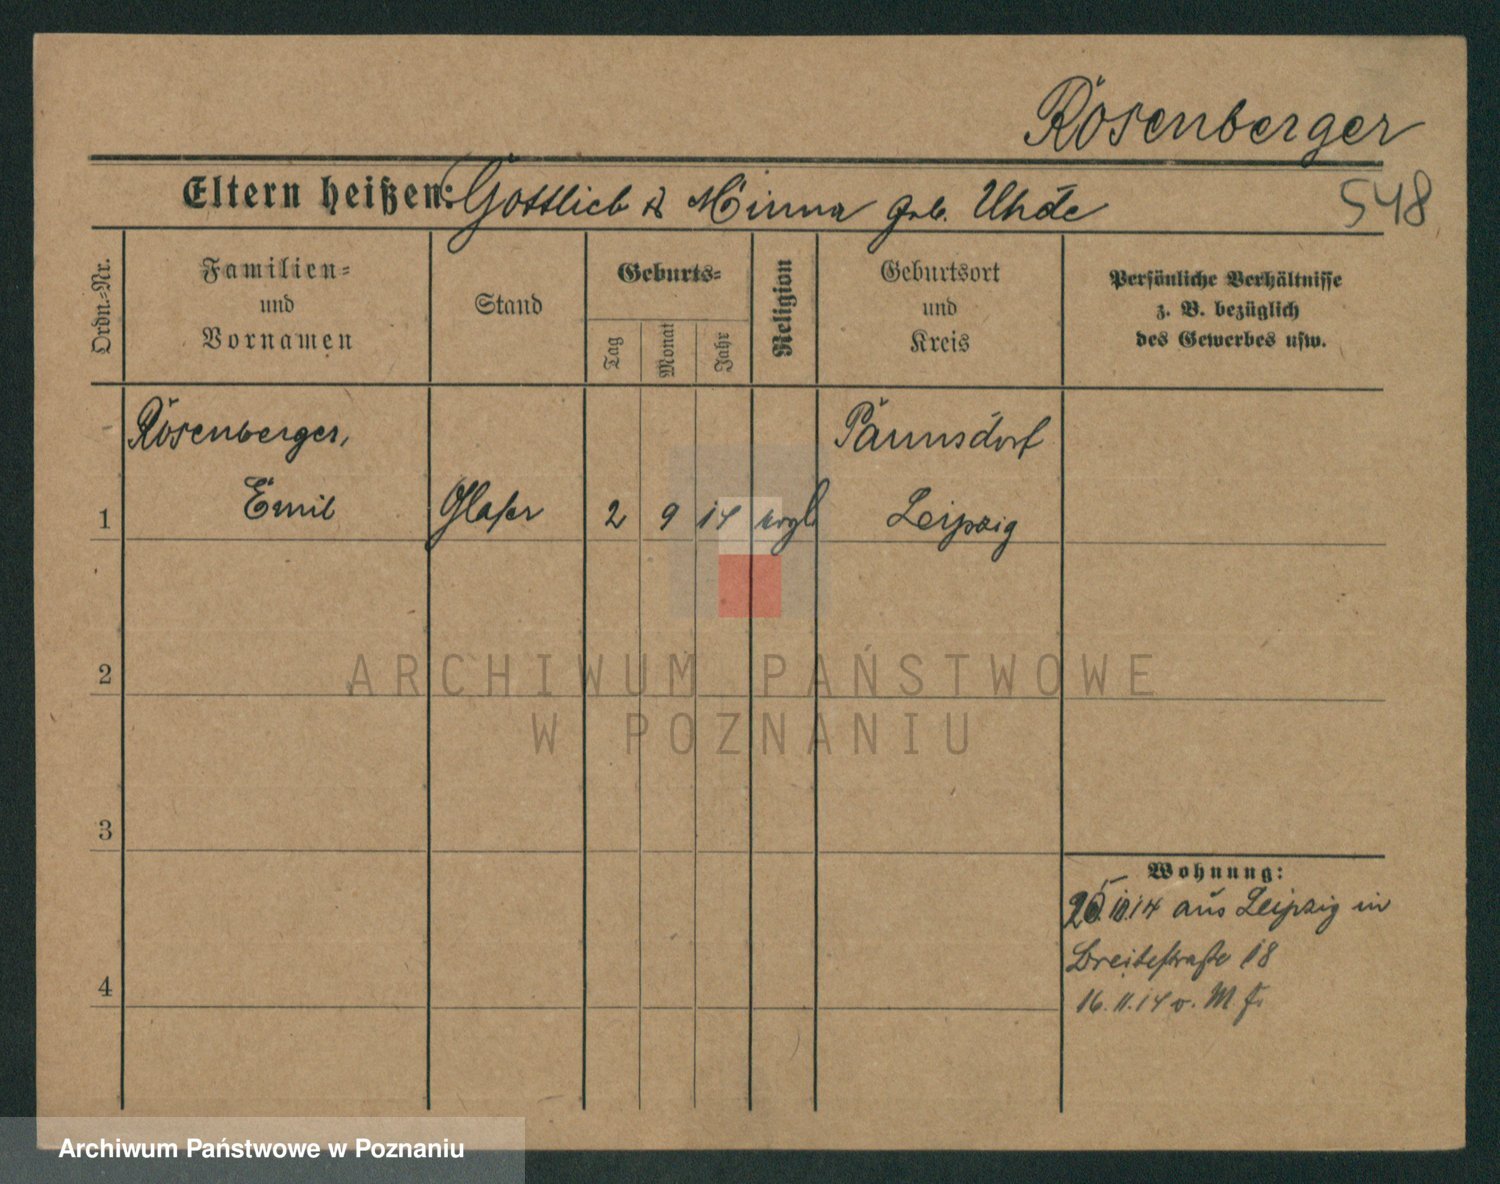 Rosenberger
Eltern heißen: Gottlieb & Minna geb. Uhde
548
Ordn.-Nr.
Familien-
und
Vornamen
Stand
Geburts-
Tag
Monat
Jahr
Religion
Geburtsort
und
Kreis
Persönliche Verhältnisse
z. B. bezüglich
des Gewerbes usw.
Rosenberger,
Emil
Glaser
2
9
14
evgl
Paunsdorf
Leipzig
1
2
3
4
Wohnung:
10.14 aus Leipzig in
Breitestraße 18
16.11.14 v. M. f.
ARCHIWUM PAŃSTWOWE
W POZNANIU
Archiwum Państwowe w Poznaniu